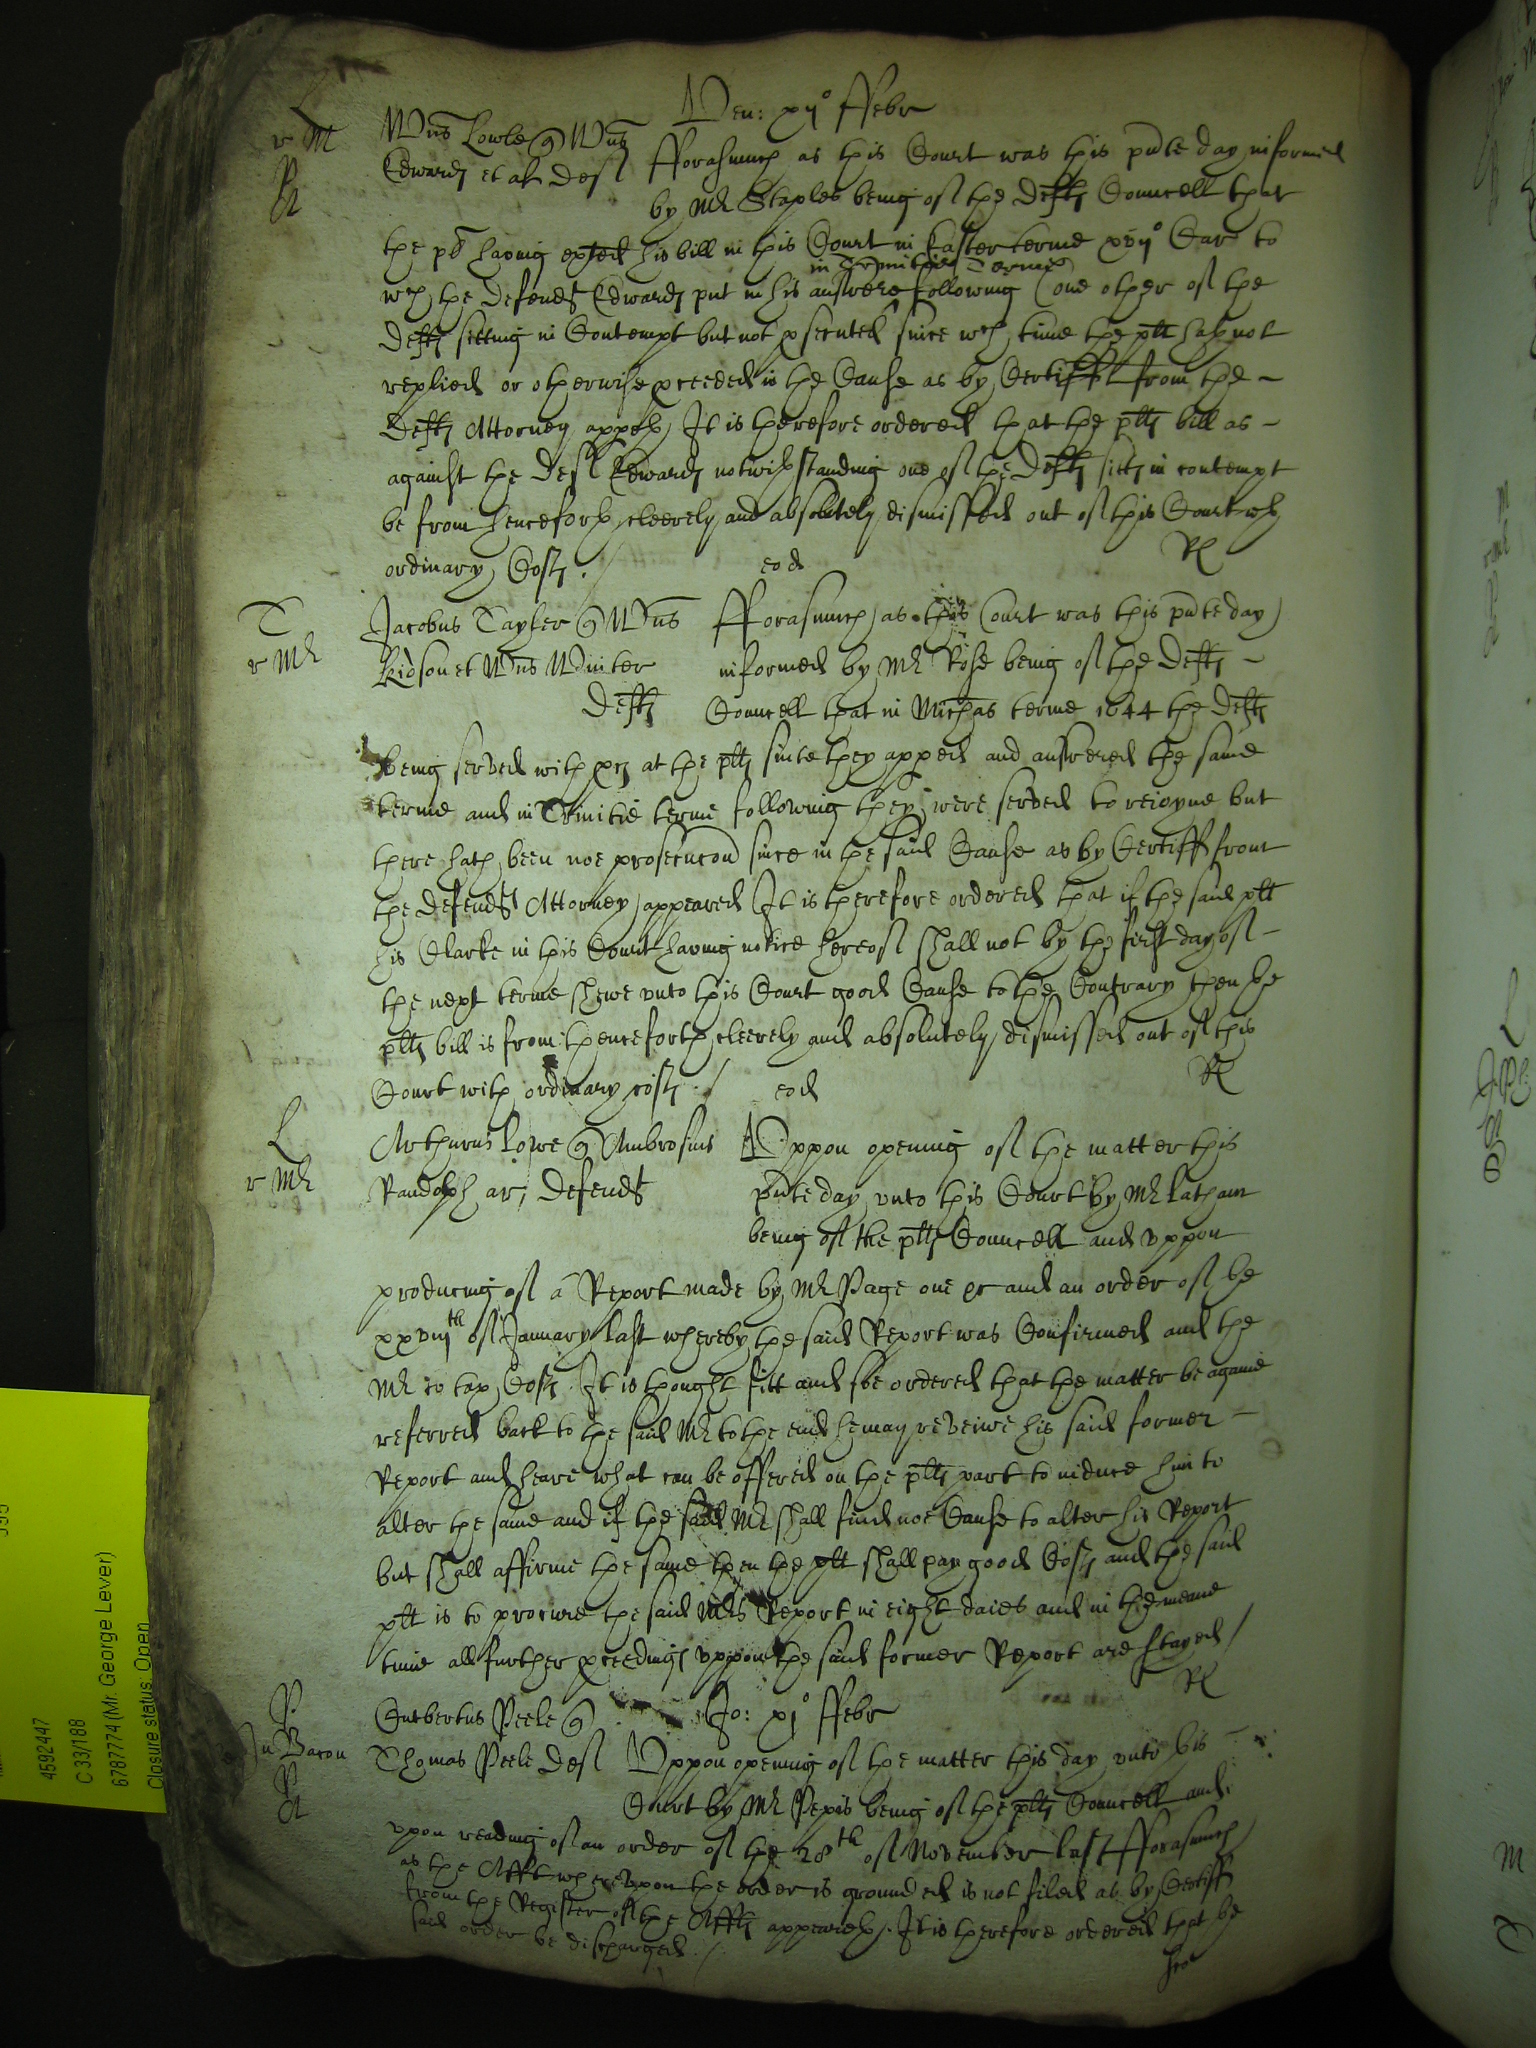 Ven: xij° ffebr
L
r M
P
A
Willus Lowle q Willus
Edwards et al defts
fforasmuch as this Court was this pnte day informed
by Mr Staples being of the defts Councell that
the plt having exhited his bill in this Court in Easter terme xvij° Car to
in Trinitie Terme
wch the defendt Edwards put in his answere following (one other of the
defts sitting in Contempt but not psecuted since wch time the plt hath not
replied or otherwise pceeded in the Cause as by Certifft from the
defts Attorney appeth It is therefore ordered that the plts bill as
against the deft Edwards notwithstanding one of the defts sitts in contempt
be from henceforth cleerely and absolutely dismissed out of this Court wth
ordinary Costs.
eod
T
r Mr
Jacobus Tayler q Willus
Kidson et Willus Winter
defts
fforasmuch as this Court was this pnte day
informed by Mr Rose being of the defts
Councell that in Michas terme 1644 the defts
being served with pcs at the plts suite they apped and answered the same
terme and in Trinitie terme following they were served to reioyne but
there hath been noe prosecucon since in the said Cause as by Certiff from
the defendts Attorney appeared It is therefore ordered that if the said plt
his Clarke in this Court having notice hereof shall not by the first day of
the next terme shewe unto this Court good Cause to the Contrary then the
plts bill is from thenceforth cleerely and absolutely dismissed out of this
Court with ordinary costs.
eod
L
r Mr
Arthurus Lowe q Ambrosius
Randolph ar, defendt
Uppon opening of the matter this
pnte day unto this Court by Mr Latham
being of the plts Councell and uppon
producing of a Report made by Mr Page one &c and an order of the
xxviijth of January last whereby the said Report was Confirmed and the
Mr to tax Costs. It is thought fitt and soe ordered that the matter be againe
referred back to the said Mr to the end he may reveiwe his said former
Report and heare what can be offered on the plts part to induce him to
alter the same and if the said Mr shall find noe Cause to alter his Report
but shall affirme the same then the plt shall pay good Costs and the said
plt is to procure the said Mrs Report in eight daies and in the meane
time all further pceedings uppon the said former Report are stayed
P
Jn Bacon
P
A
Cutbertus Peele q
Thomas Peele deft
Jo: xj° ffebr
Uppon opening of the matter this day unto this
Court by Mr Pepis being of the plts Councell and
upon reading of an order of the 28th of November last fforasmuch
as the Afft whereupon the order is grounded is not filed as by Certiff
from the Register of the Affts appeareth. It is therefore ordered that the
said order be discharged.
4592447
C 33/188
6787774 (Mr. George Lever)
Closure status: Open